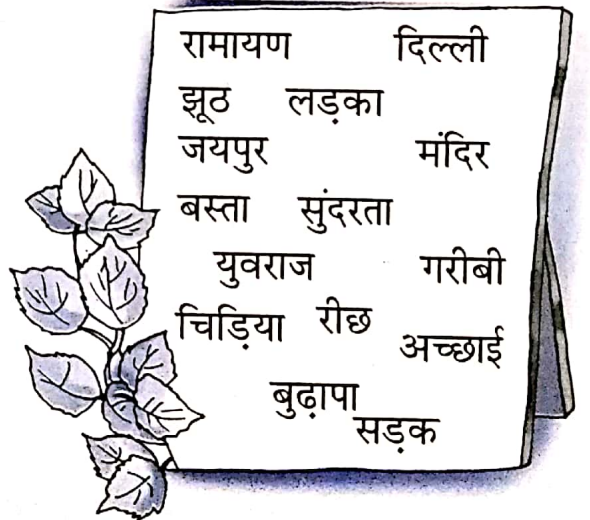 रामायण दिल्ली
झूठ लड़का
जयपुर मंदिर
बस्ता सुंदरता
युवराज गरीबी
चिड़िया रीछ अच्छाई
बुढ़ापा
सड़क